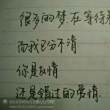 很多的梦在等待
而我已分不清
你是友情
还是错过的爱情